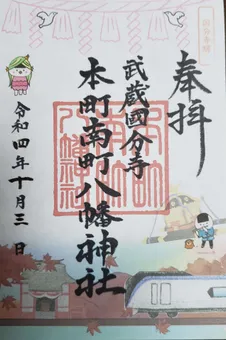 奉拝
武蔵國分寺
本町南町八幡神社
令和四年十月三日